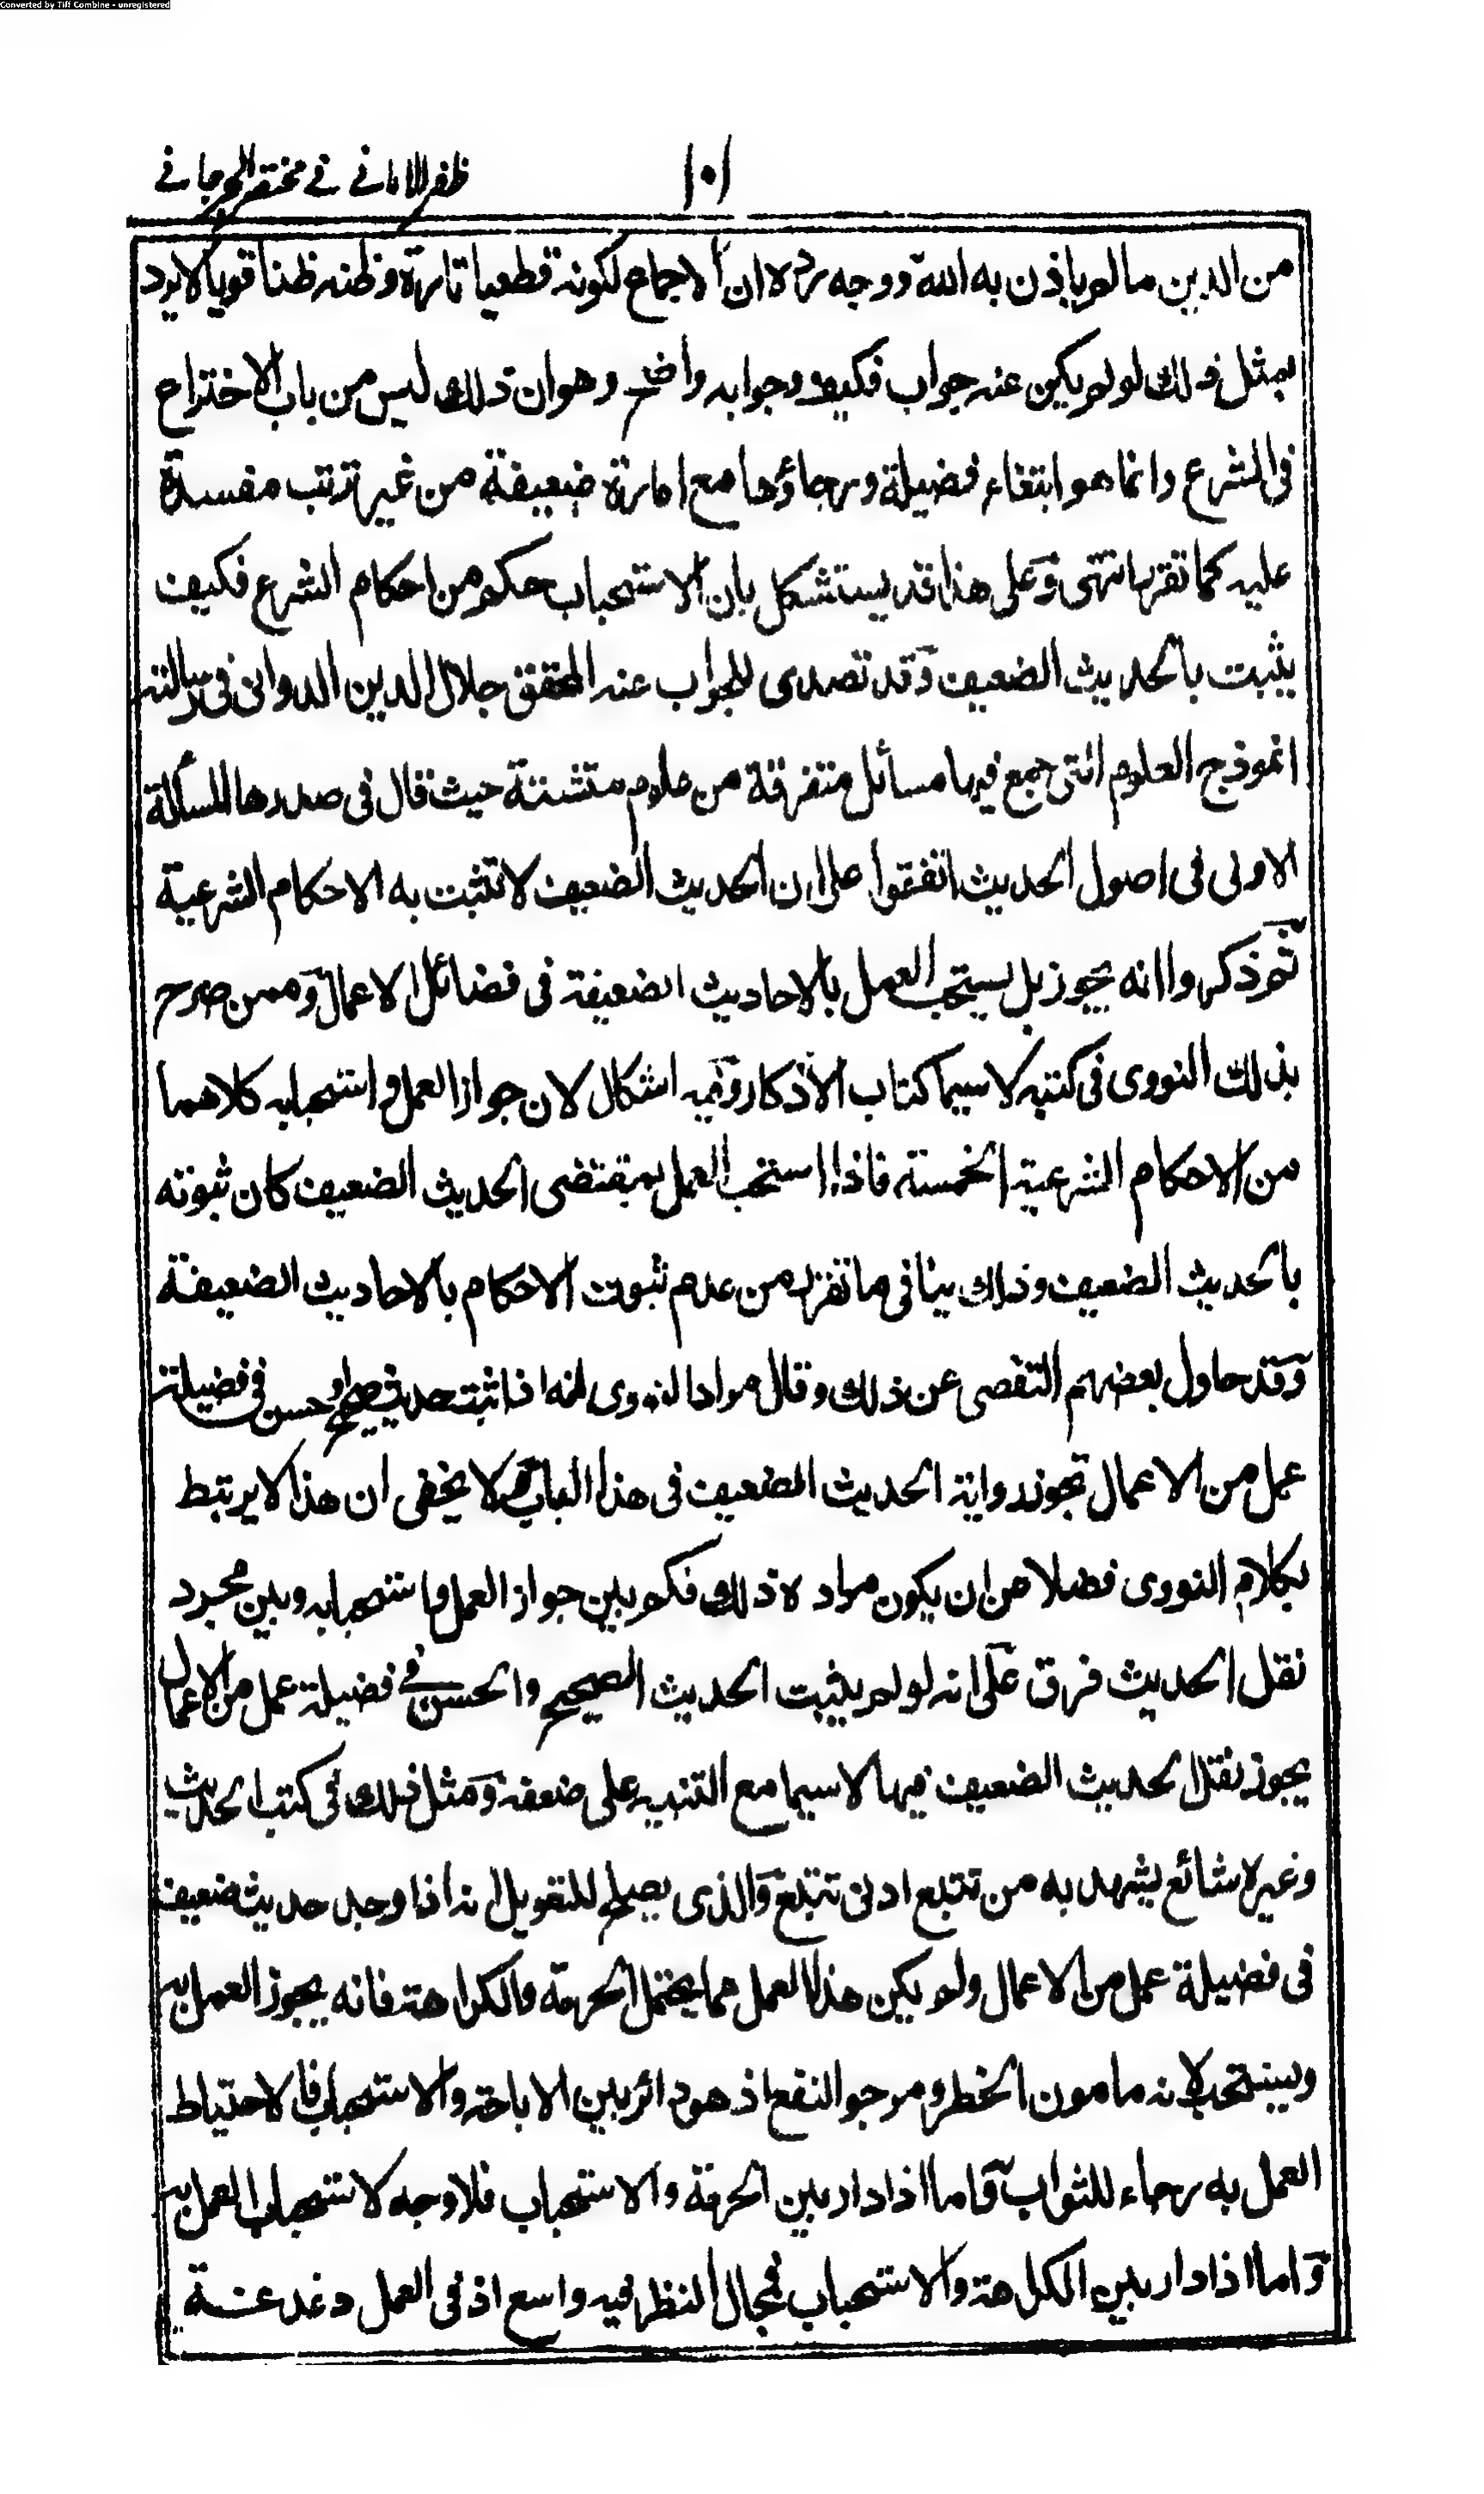 Converted by Tiff Combine - unregistered
١٠١ ظفر الامانی فی مختصر الجرجانی
من الدین ما لم یاذن به الله ووجه رده ان الاجماع لکونه قطعیا تارة وظنه ظنا قویا لا یرد
بمثل ذلك لو لم یکن عنه جواب فکیف وجوابه واضح وهو ان ذلك لیس من باب الاختراع
فی الشرع وانما هو ابتغاء فضیلة ورجاؤها مع امارة ضعیفة من غیر ترتب مفسدة
علیه کما تقرر انتهی وعلی هذا قد یستشکل بان الاستحباب حکم من احکام الشرع فکیف
یثبت بالحدیث الضعیف وقد تصدی للجواب عنه المحقق جلال الدین الدوانی فی رسالته
انموذج العلوم التی جمع فیها مسائل متفرقة من علوم متشتتة حیث قال فی صدرها المسئلة
الاولی فی اصول الحدیث اتفقوا علی ان الحدیث الضعیف لا تثبت به الاحکام الشرعیة
ثم ذکروا انه یجوز بل یستحب العمل بالاحادیث الضعیفة فی فضائل الاعمال وممن صرح
بذلك النووی فی کتبه لا سیما کتاب الاذکار وفیه اشکال لان جواز العمل واستحبابه کلاهما
من الاحکام الشرعیة الخمسة فاذا استحب العمل بمقتضی الحدیث الضعیف کان ثبوته
بالحدیث الضعیف وذلك ینافی ما تقرر من عدم ثبوت الاحکام بالاحادیث الضعیفة
وقد حاول بعضهم التفصی عن ذلك وقال مراد النووی انه اذا ثبت حدیث صحیح او حسن فی فضیلة
عمل من الاعمال تجوز روایة الحدیث الضعیف فی هذا الباب ولا یخفی ان هذا لا یرتبط
بکلام النووی فضلا من ان یکون مراده ذلك فکم بین جواز العمل واستحبابه وبین مجرد
نقل الحدیث فرق علی انه لو لم یثبت الحدیث الصحیح والحسن فی فضیلة عمل من الاعمال
یجوز نقل الحدیث الضعیف فیها لا سیما مع التنبیه علی ضعفه ومثل ذلك فی کتب الحدیث
وغیره شائع یشهد به من تتبع ادنی تتبع والذی یصلح للتعویل انه اذا وجد حدیث ضعیف
فی فضیلة عمل من الاعمال ولم یکن هذا العمل مما یحتمل الحرمة والکراهة فانه یجوز العمل به
ویستحب لانه مامون الخطر ومرجو النفع اذ هو دائر بین الاباحة والاستحباب فالاحتیاط
العمل به رجاء للثواب واما اذا دار بین الحرمة والاستحباب فلا وجه لاستحباب العمل به
واما اذا دار بین الکراهة والاستحباب فمجال النظر فیه واسع اذ فی العمل دغدغة